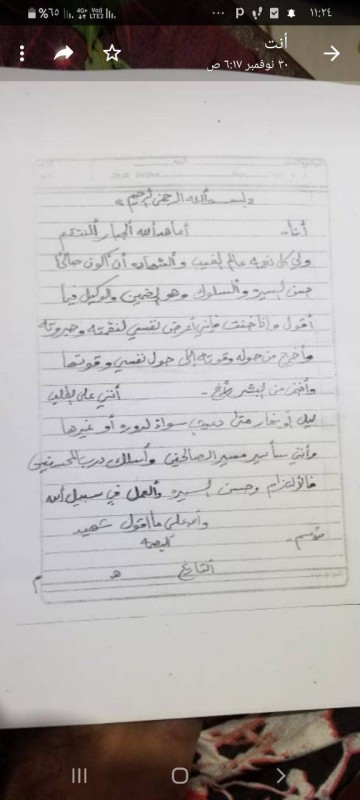 ١١:٢٤
%٦٥
أنت
٣٠ نوفمبر ٦:١٧ ص
بسم الله الرحمن الرحيم
أنا.. أعاهد الله الجبار المنتقم
ولي كل نعمه عالم الغيب والشهاده أن أكون صالحًا
حسن السيره والسلوك وهو الضمين والوكيل فيما
أقول وإذا خنت فإنني أعرض نفسي لنقمته وجبروته
وأخرج من حوله وقوته إلى حول نفسي وقوتها
وأخزى من البشر - أنني على
ليل أو نهار متى سواء لدوره أو غيرها
وأنني سأسير مسير الصالحين وأسلك درب المحسنين
فالإلتزام وحسن السيره والعمل في سبيل الله
والله على ما أقول شهيد
البصمه
التاريخ هـ م